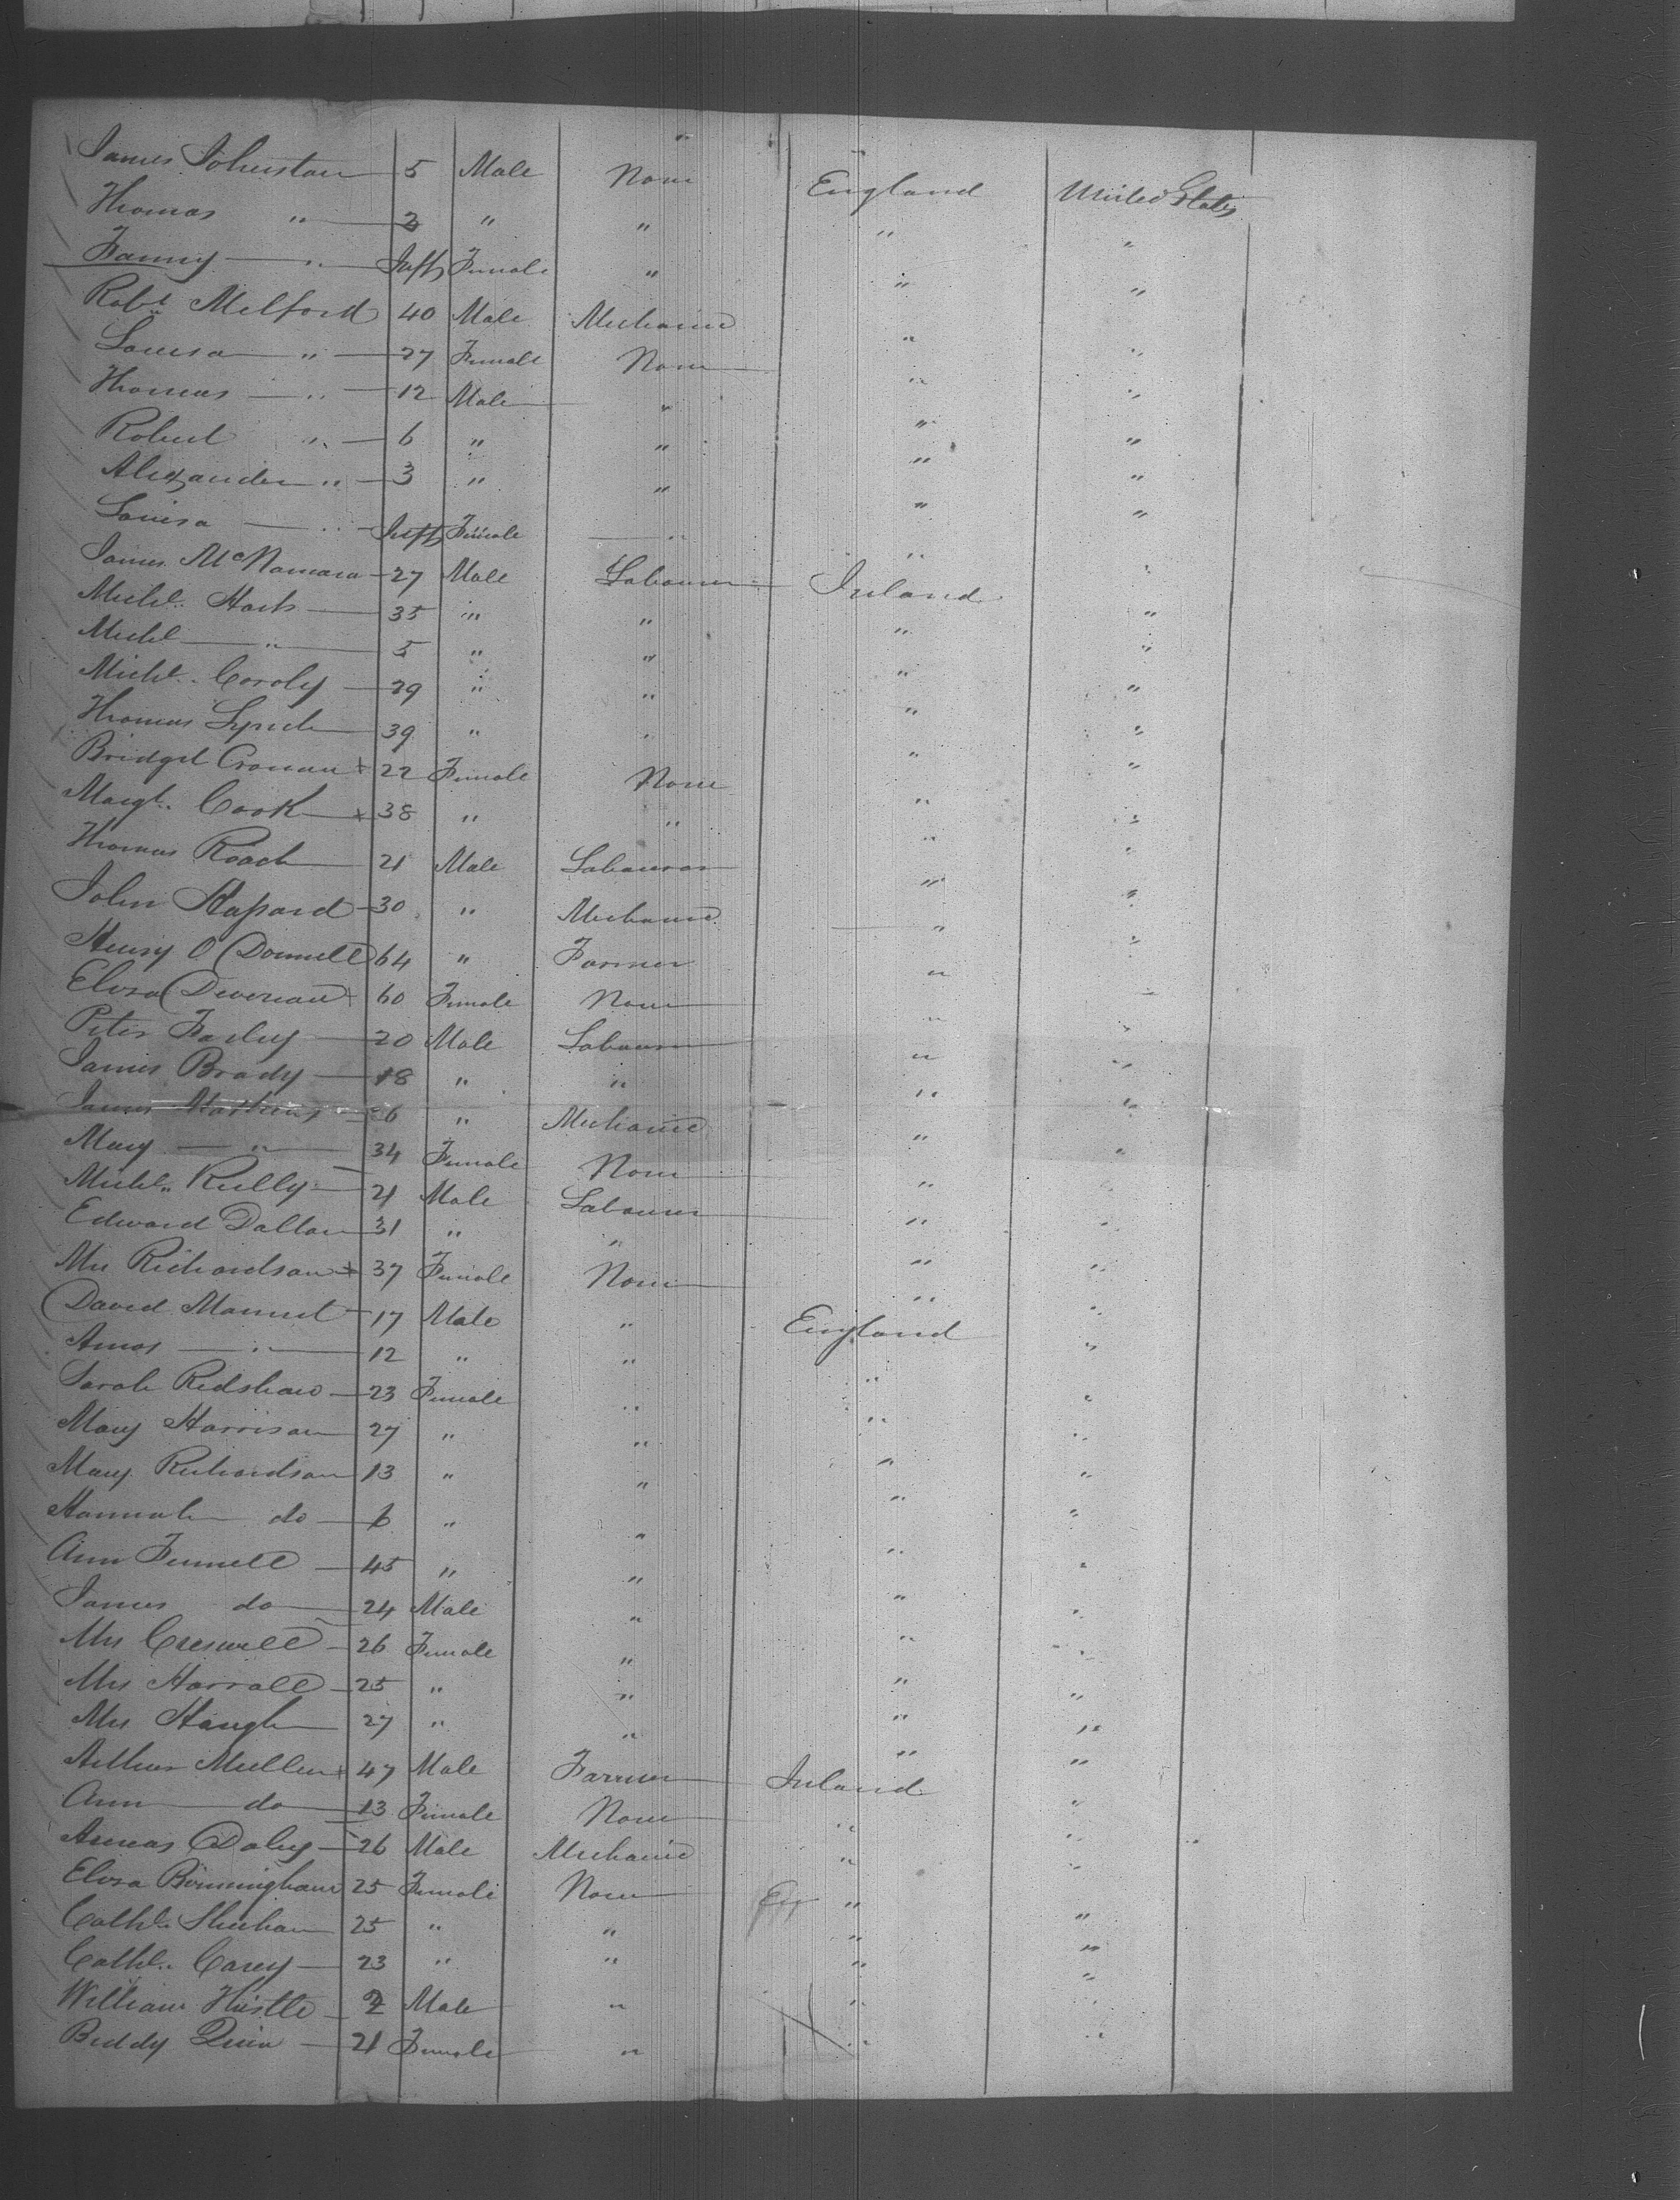 James Johnston 5 Male None England United States
Thomas " 2 " " " "
Fanny " Inft Female " " "
Robt Melford 40 Male Mechanic " "
Louisa " 27 Female None " "
Thomas " 12 Male " " "
Robert " 6 " " " "
Alexander " 3 " " " "
Louisa " Inft Female " " "
James McNamara 27 Male Labourer Ireland "
Michl. Hart 35 " " " "
Michl " 5 " " " "
Michl. Coroly 29 " " " "
Thomas Lynch 39 " " " "
Bridget Cronan + 22 Female None " "
Margt. Cook + 38 " " " "
Thomas Roach 21 Male Labourer " "
John 30 " Mechanic " "
Henry O Donnell 64 " Farmer " "
Eliza Devereau + 60 Female None " "
Peter Farley 20 Male Labourer " "
James Brady 18 " " " "
James 26 " Mechanic " "
Mary " 34 Female None " "
Michl. Reilly 21 Male Labourer " "
Edward Dalton 31 " " " "
Mrs Richardson + 37 Female None " "
David Mannet 17 Male " England "
Amos " 12 " " " "
Sarah Redshaw 23 Female " " "
Mary Harrison 27 " " " "
Mary Richardson 13 " " " "
Hannah do 6 " " " "
Ann Fennell 45 " " " "
James do 24 Male " " "
Mrs Creswell 26 Female " " "
Mrs Harrall 25 " " " "
Mrs Haugh 27 " " " "
Arthur Mullen + 47 Male Farmer Ireland "
Ann do 13 Female None " "
Daley 26 Male Mechanic " "
Eliza Birmingham 25 Female None " "
Cathe. Sheehan 25 " " " "
Cathe. Carey 23 " " " "
William Hustle 2 Male " " "
Biddy Quin 21 Female " " "